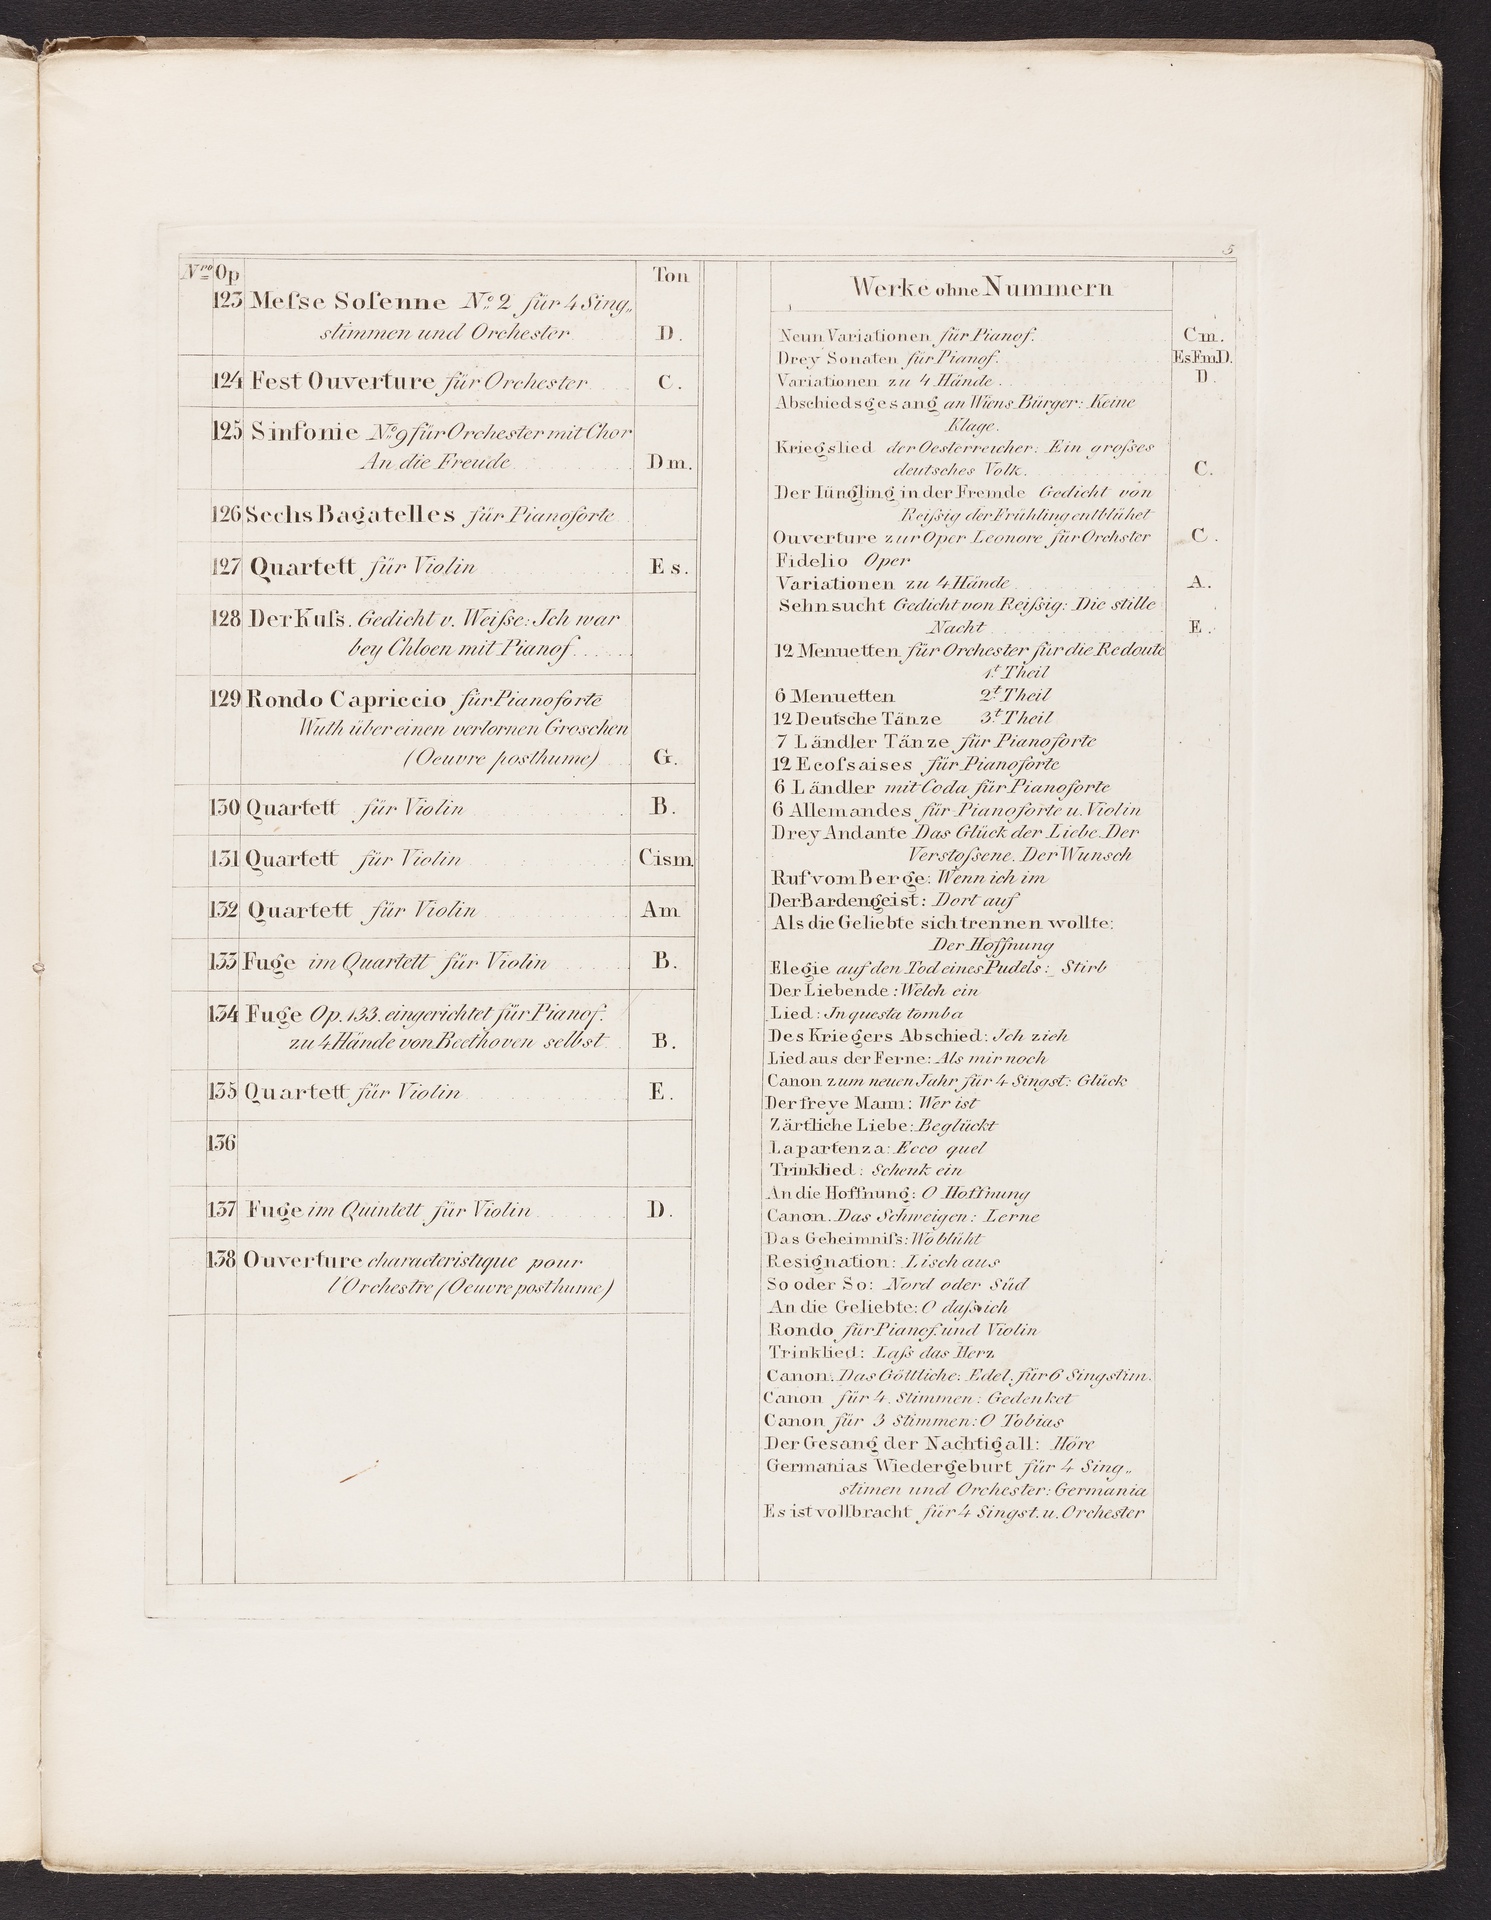 5
Nro Op Ton
123 Meſse Solenne No. 2 für 4 Sing„
stimmen und Orchester D.
124 Fest Ouverture für Orchester C.
125 Sinfonie No. 9 für Orchester mit Chor
An die Freude Dm.
126 Sechs Bagatelles für Pianoforte
127 Quartett für Violin Es.
128 Der Kuſs. Gedicht v. Weiſse: Ich war
bey Chloen mit Pianof.
129 Rondo Capriccio für Pianoforte
Wuth über einen verlornen Groschen
(Oeuvre posthume) G.
130 Quartett für Violin B.
131 Quartett für Violin Cism
132 Quartett für Violin Am
133 Fuge im Quartett für Violin B.
134 Fuge Op. 133. eingerichtet für Pianof.
zu 4 Hände von Beethoven selbst B.
135 Quartett für Violin E.
136
137 Fuge im Quintett für Violin D.
138 Ouverture characteristique pour
l'Orchestre (Oeuvre posthume)
Werke ohne Nummern
Neun Variationen für Pianof. Cm.
Drey Sonaten für Pianof. Es Fm D.
Variationen zu 4 Hände. D.
Abschiedsgesang an Wiens Bürger: Keine
Klage.
Kriegslied der Oesterreicher: Ein groſses
deutsches Volk. C.
Der Jüngling in der Fremde Gedicht von
Reiſsig der Frühling entblühet
Ouverture zur Oper Leonore für Orchster C.
Fidelio Oper
Variationen zu 4 Hände A.
Sehnsucht Gedicht von Reiſsig: Die stille
Nacht E.
12 Menuetten für Orchester für die Redoute
1t. Theil
6 Menuetten 2t. Theil
12 Deutsche Tänze 3t. Theil
7 Ländler Tänze für Pianoforte
12 Ecoſsaises für Pianoforte
6 Ländler mit Coda für Pianoforte
6 Allemandes für Pianoforte u. Violin
Drey Andante Das Glück der Liebe. Der
Verstoſsene. Der Wunsch
Ruf vom Berge: Wenn ich im
Der Bardengeist: Dort auf
Als die Geliebte sich trennen wollte:
Der Hoffnung
Elegie auf den Tod eines Pudels: Stirb
Der Liebende: Welch ein
Lied: In questa tomba
Des Kriegers Abschied: Ich zieh
Lied aus der Ferne: Als mir noch
Canon zum neuen Jahr für 4 Singst: Glück
Der freye Mann: Wer ist
Zärtliche Liebe: Beglückt
La partenza: Ecco quel
Trinklied: Schenk ein
An die Hoffnung: O Hoffnung
Canon. Das Schweigen: Lerne
Das Geheimniſs: Wo blüht
Resignation: Lisch aus
So oder So: Nord oder Süd
An die Geliebte: O daſs ich
Rondo für Pianof. und Violin
Trinklied: Laſs das Herz
Canon. Das Göttliche: Edel. für 6 Singstim.
Canon für 4. Stimmen: Gedenket
Canon für 3 Stimmen: O Tobias
Der Gesang der Nachtigall: Höre
Germanias Wiedergeburt für 4 Sing„
stimen und Orchester: Germania
Es ist vollbracht für 4 Singst. u. Orchester